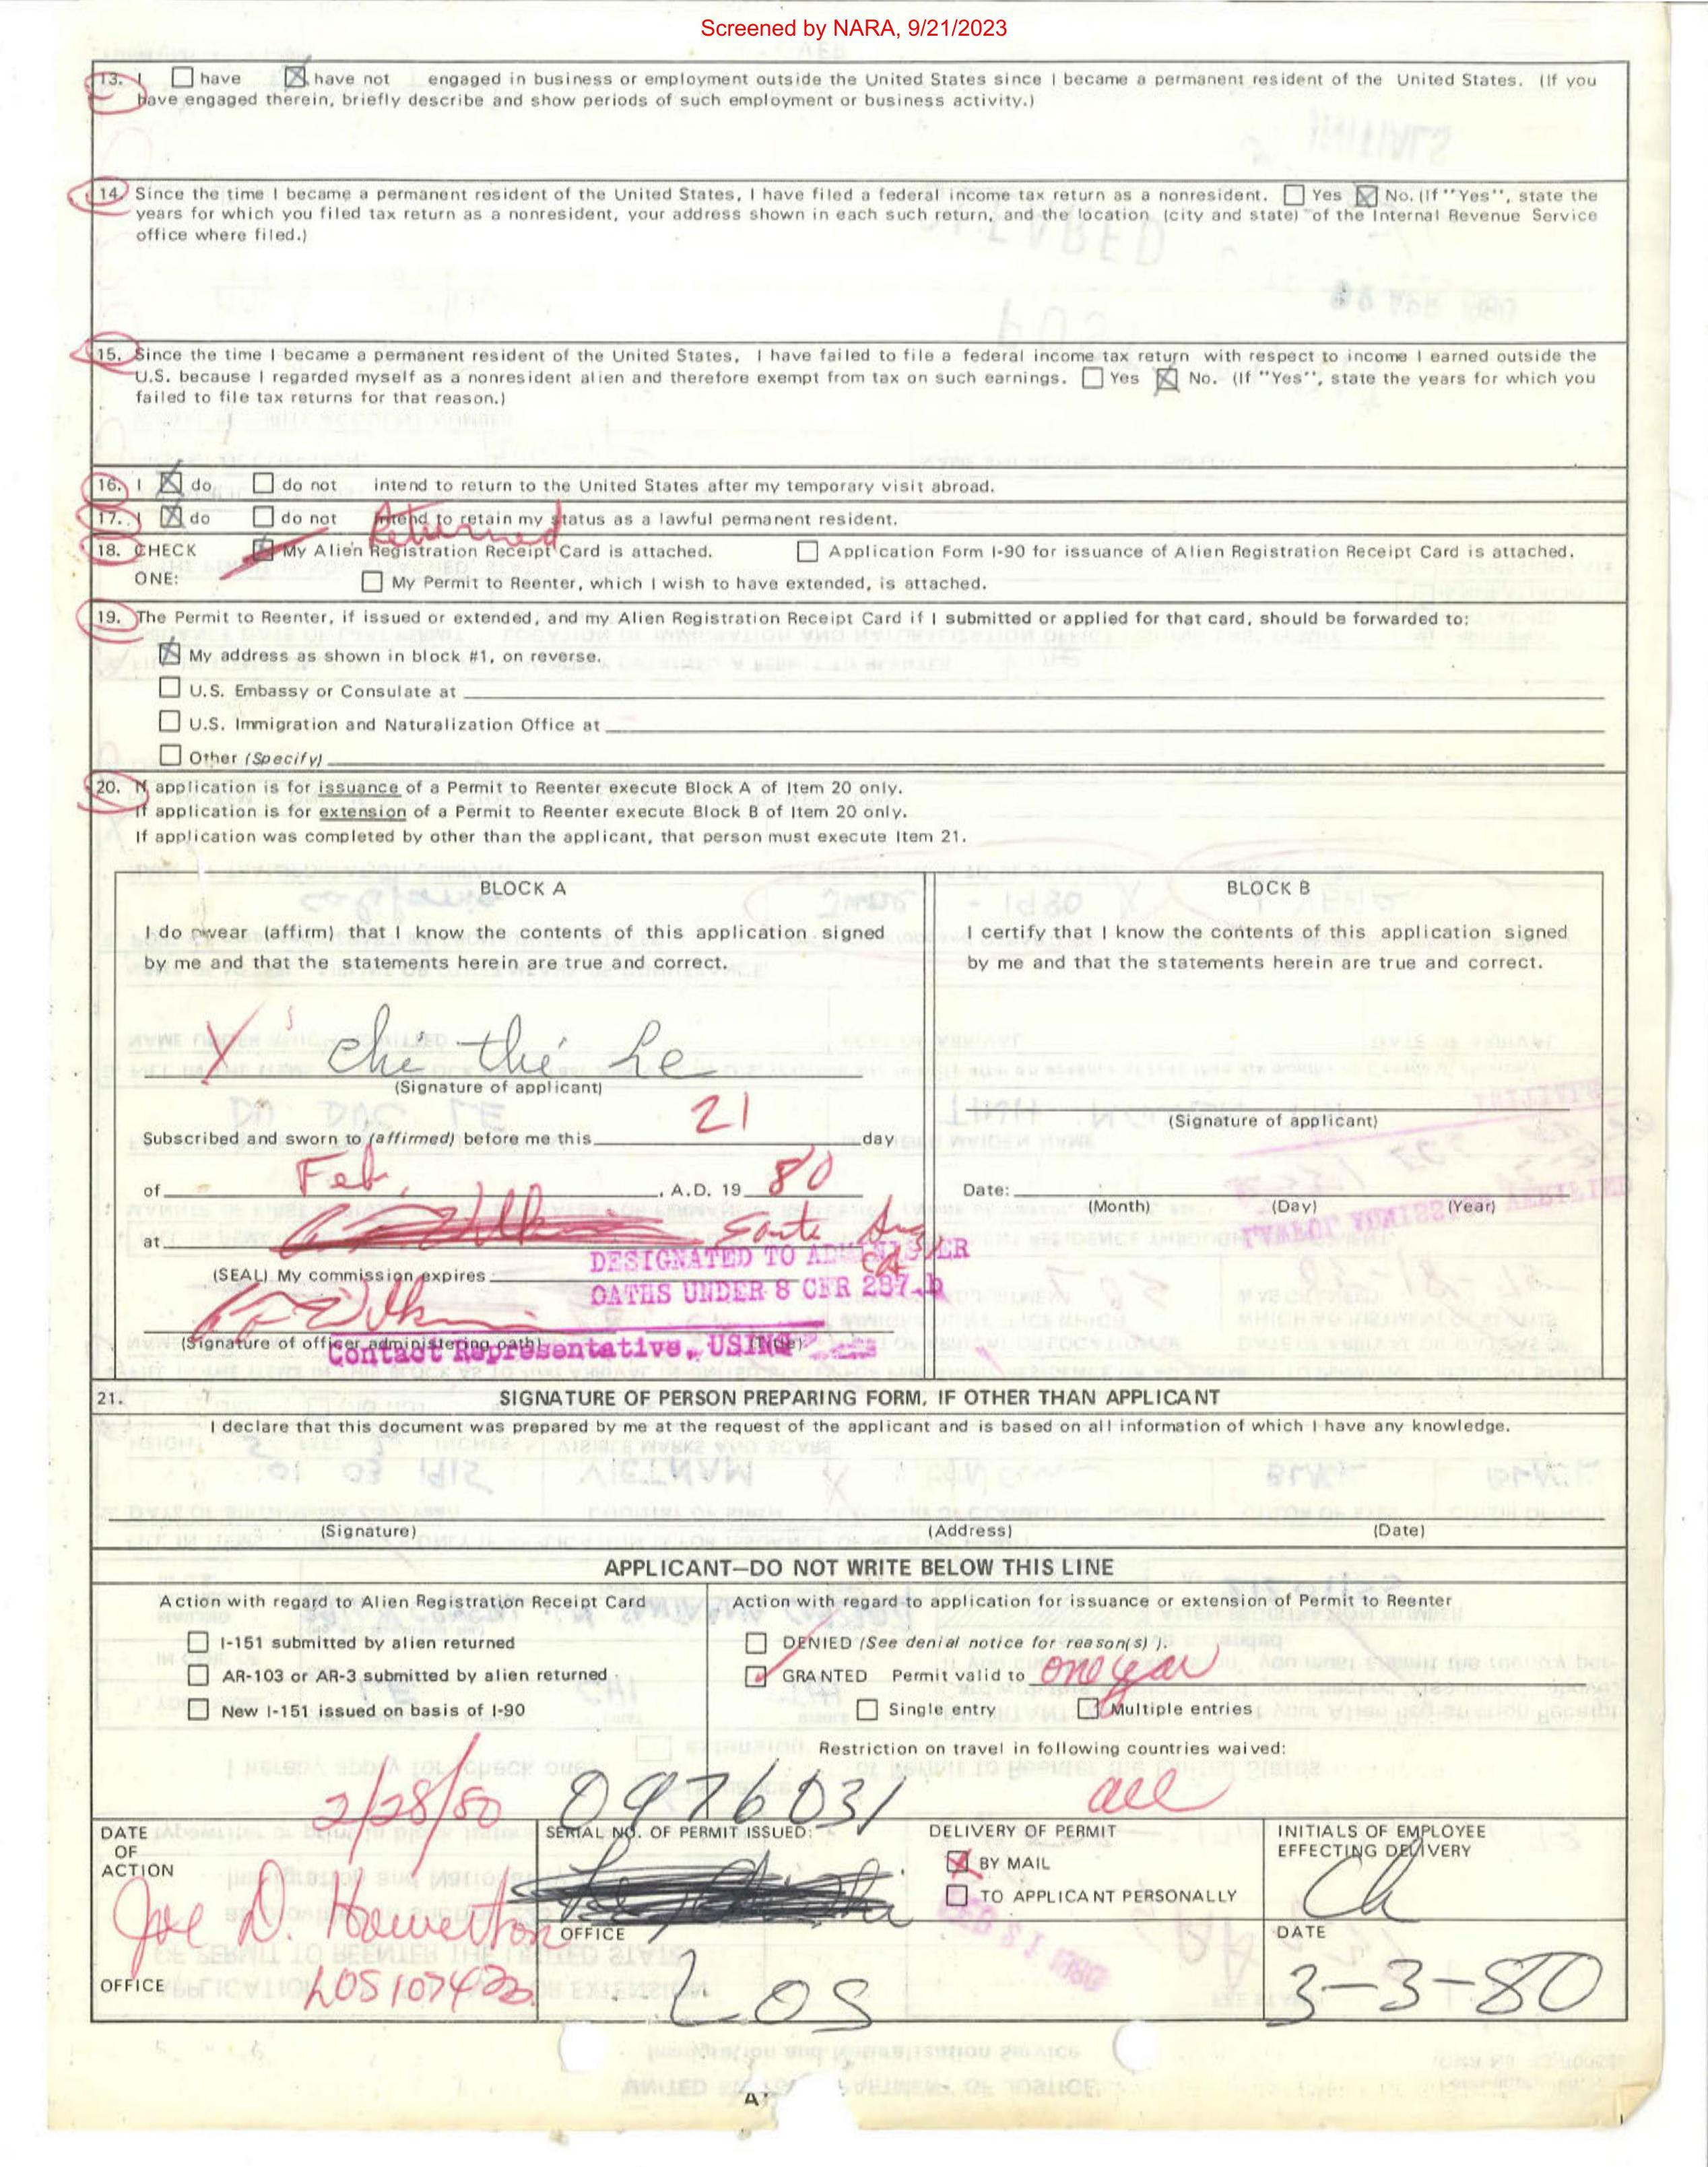 Screened by NARA, 9/21/2023
13. I ☐ have ☒ have not engaged in business or employment outside the United States since I became a permanent resident of the United States. (If you
have engaged therein, briefly describe and show periods of such employment or business activity.)
14. Since the time I became a permanent resident of the United States, I have filed a federal income tax return as a nonresident. ☐ Yes ☒ No. (If "Yes", state the
years for which you filed tax return as a nonresident, your address shown in each such return, and the location (city and state) of the Internal Revenue Service
office where filed.)
15. Since the time I became a permanent resident of the United States, I have failed to file a federal income tax return with respect to income I earned outside the
U.S. because I regarded myself as a nonresident alien and therefore exempt from tax on such earnings. ☐ Yes ☒ No. (If "Yes", state the years for which you
failed to file tax returns for that reason.)
16. I ☒ do ☐ do not intend to return to the United States after my temporary visit abroad.
17. I ☒ do ☐ do not intend to retain my status as a lawful permanent resident.
Returned
18. CHECK ☒ My Alien Registration Receipt Card is attached. ☐ Application Form I-90 for issuance of Alien Registration Receipt Card is attached.
ONE: ☐ My Permit to Reenter, which I wish to have extended, is attached.
19. The Permit to Reenter, if issued or extended, and my Alien Registration Receipt Card if I submitted or applied for that card, should be forwarded to:
☒ My address as shown in block #1, on reverse.
☐ U.S. Embassy or Consulate at
☐ U.S. Immigration and Naturalization Office at
☐ Other (Specify)
20. If application is for issuance of a Permit to Reenter execute Block A of Item 20 only.
If application is for extension of a Permit to Reenter execute Block B of Item 20 only.
If application was completed by other than the applicant, that person must execute Item 21.
BLOCK A
I do swear (affirm) that I know the contents of this application signed
by me and that the statements herein are true and correct.
X chi thi Le
(Signature of applicant)
Subscribed and sworn to (affirmed) before me this 21 day
of Feb, , A.D. 19 80
at Santa Ana
Ca
DESIGNATED TO ADMINISTER
(SEAL) My commission expires
OATHS UNDER 8 CFR 287.b
(Signature of officer administering oath) (Title)
Contact Representative, USINS
BLOCK B
I certify that I know the contents of this application signed
by me and that the statements herein are true and correct.
(Signature of applicant)
Date:
(Month) (Day) (Year)
21. SIGNATURE OF PERSON PREPARING FORM, IF OTHER THAN APPLICANT
I declare that this document was prepared by me at the request of the applicant and is based on all information of which I have any knowledge.
(Signature) (Address) (Date)
APPLICANT—DO NOT WRITE BELOW THIS LINE
Action with regard to Alien Registration Receipt Card
☐ I-151 submitted by alien returned
☐ AR-103 or AR-3 submitted by alien returned
☐ New I-151 issued on basis of I-90
Action with regard to application for issuance or extension of Permit to Reenter
☐ DENIED (See denial notice for reason(s) ).
☑ GRANTED Permit valid to one year
☐ Single entry ☑ Multiple entries
Restriction on travel in following countries waived:
all
2/28/80
DATE
OF
ACTION
Joe D. Howerton
OFFICE LOS 107422
0976031
SERIAL NO. OF PERMIT ISSUED:
OFFICE
LOS
DELIVERY OF PERMIT
☒ BY MAIL
☐ TO APPLICANT PERSONALLY
INITIALS OF EMPLOYEE
EFFECTING DELIVERY
Ch
DATE
3-3-80